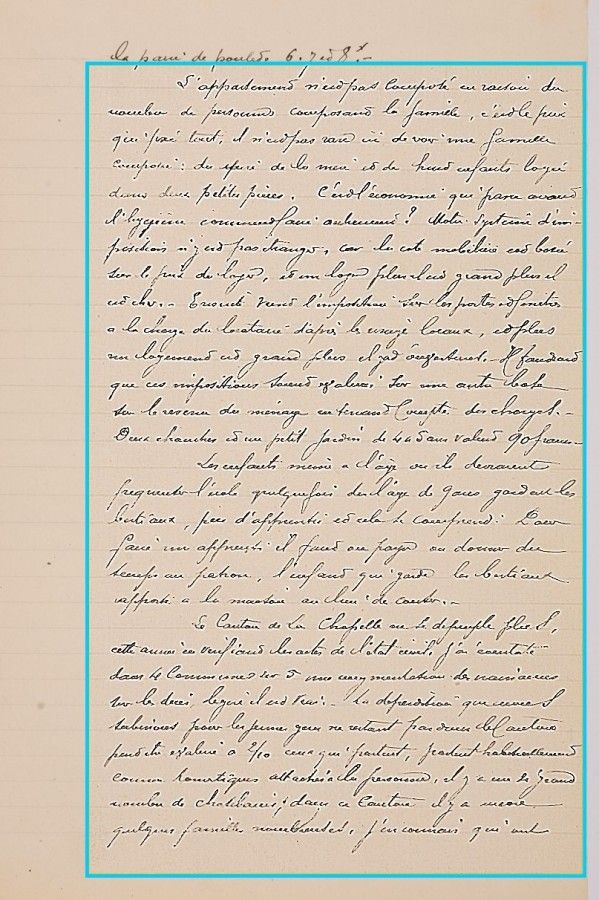 la paire de poulets 6. 7 et 8 f.-
L'appartement n'est pas compté en raison du
nombre de personnes composant la famille, c'est le prix
qui fixe tout, il n'est pas rare ici de voir une famille
composée: du père de la mère et de huit enfants logée
dans deux petites pièces. C'est l'économie qui passe avant
l'hygiène comment faire autrement? Notre système d'im-
positions n'y est pas étranger, car la cote mobilière est basée
sur le prix du loyer, et un loyer plus il est grand plus il
est cher.- Ensuite vient l'imposition sur les portes et fenêtres
a la charge du locataire d'après les usages locaux, et plus
un logement est grand plus il y a d'ouvertures. Il faudrait
que ces impositions soient évaluées sur une autre base
sur le revenu du ménage en tenant compte des charges.-
Deux chambres et un petit jardin de valent 90 francs-
Les enfants même a l'âge ou ils devraient
fréquenter l'école quelquefois dès l'âge de 9 ans gardent les
bestiaux, peu d'apprentis et cela se comprend: Pour
faire un apprenti il faut ou payer ou donner du
temps au patron, l'enfant qui garde les bestiaux
rapporte a la maison au lieu de couter.-
Le Canton de La Chapelle ne se dépeuple plus,
cette année en vérifiant les actes de l'état civil, j'ai constaté
dans 4 Communes sur 5 une augmentation des naissances
sur les décès, légère il est vrai.- La déperdition que nous
subissons pour les jeunes gens ne restant pas dans le Canton
peut être évaluée a 2/10 ceux qui partent, partent habituellement
comme domestiques attachés a la personne, il y a un si grand
nombre de chatelains dans ce Canton il y a encore
quelques familles nombreuses, j'en connais qui ont